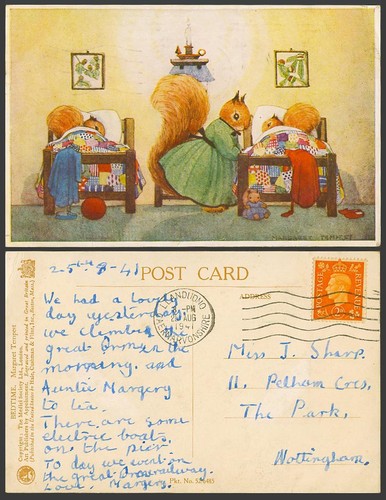 MARGARET TEMPEST
25th-8-41
POST CARD
ADDRESS
We had a lovely
day yesterday
we climbed the
great Orme in the
morning, and
Auntie Margery
to tea.
There are some
electric boats
on the pier.
To day we went in
the great Orme
Love, Margery.
LLANDUDNO
PM
AUG
1941
CAERNARVONSHIRE
POSTAGE REVENUE
Miss J. Sharp.
11. Pelham Cres,
The Park,
Nottingham.
BEDTIME. Margaret Tempest
Copyright The Medici Society Ltd., London
Pkt. No.